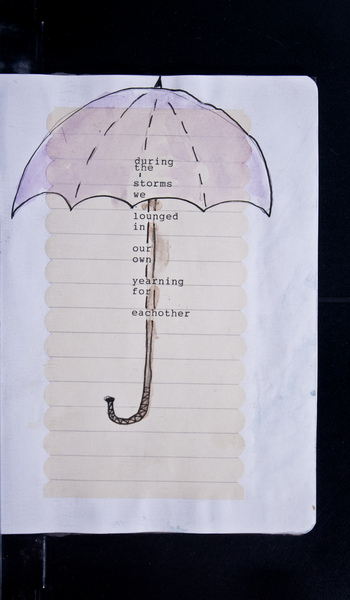 during
the
storms
we
lounged
in
our
own
yearning
for
eachother